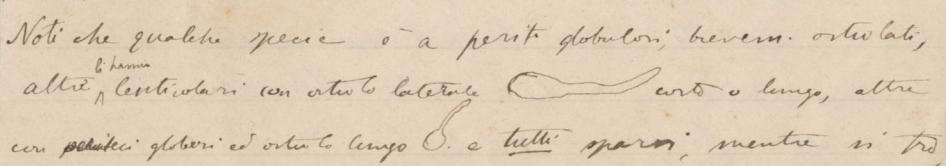 Noti che qualche specie è a periti globulosi, brevem. ostiolati,
altre li hanno lenticolari con ostiolo laterale corto o lungo, altre
con periteci globosi ed ostiolo lungo e tutti sparsi, mentre si tro